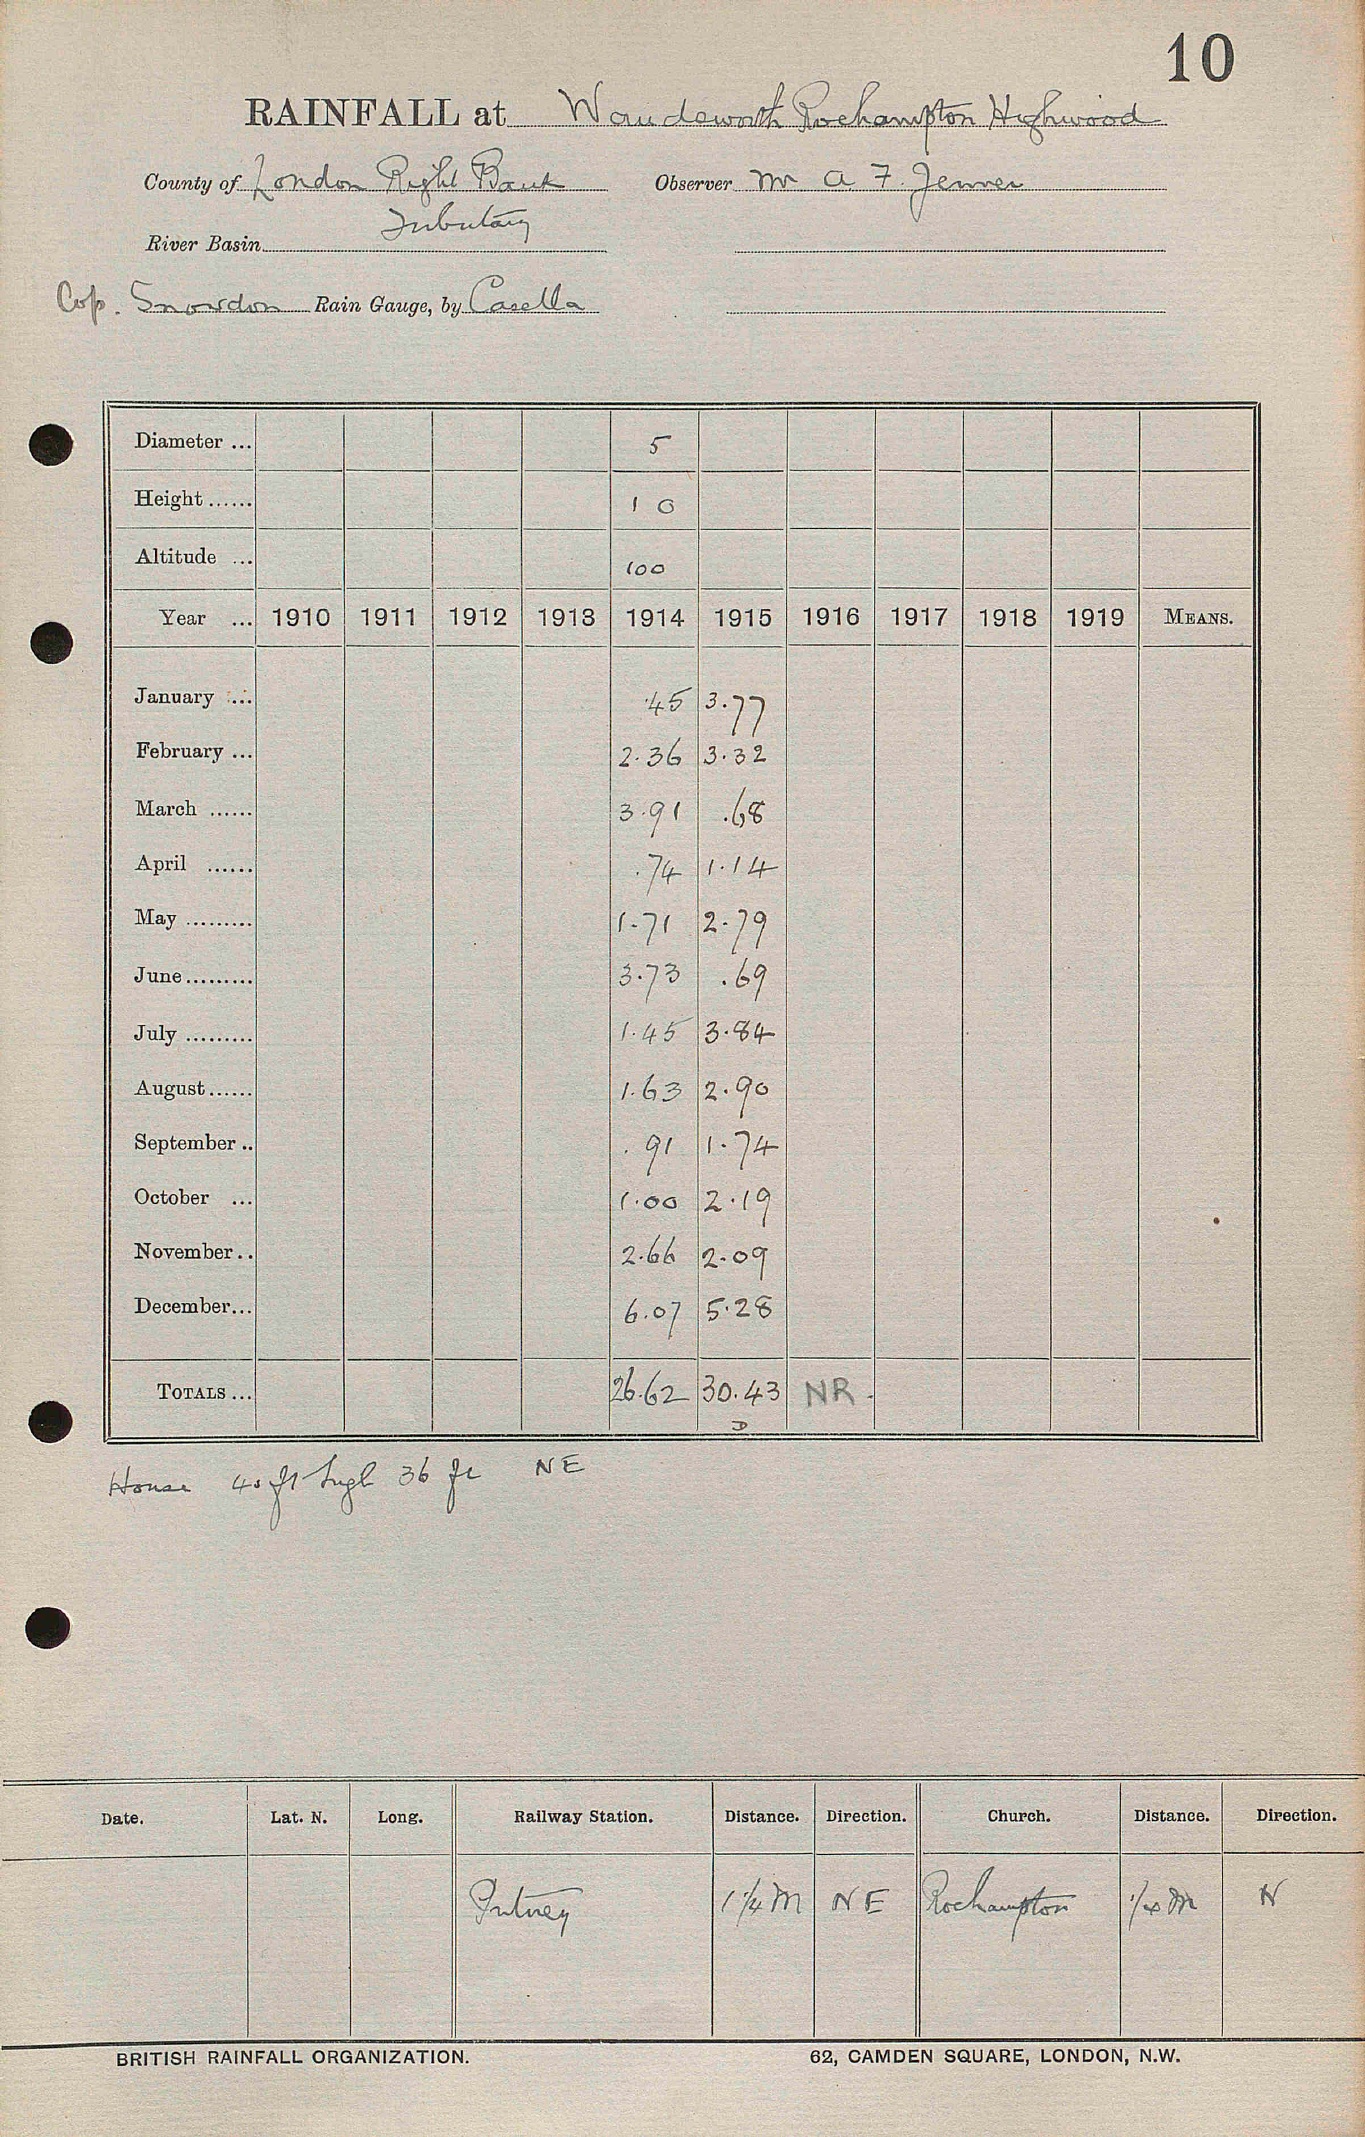 10
RAINFALL at Wandsworth Roehampton Highwood
County of London Right Bank Observer Mr A. F. Jenner
Tributary
River Basin
Cop. Snowdon Rain Gauge, by Casella
Diameter ... 5
Height ...... 1 0
Altitude ... 100
Year ... 1910 1911 1912 1913 1914 1915 1916 1917 1918 1919 MEANS.
January ... .45 3.77
February ... 2.36 3.32
March ...... 3.91 .68
April ...... .74 1.14
May ......... 1.71 2.79
June......... 3.73 .69
July ......... 1.45 3.84
August...... 1.63 2.90
September .. .91 1.74
October ... 1.00 2.19
November.. 2.66 2.09
December... 6.07 5.28
TOTALS ... 26.62 30.43 NR.
D
House 40 ft high 36 ft NE
Date. Lat. N. Long. Railway Station. Distance. Direction. Church. Distance. Direction.
Putney 1 1/4 M NE Roehampton 1/4 M N
BRITISH RAINFALL ORGANIZATION. 62, CAMDEN SQUARE, LONDON, N.W.